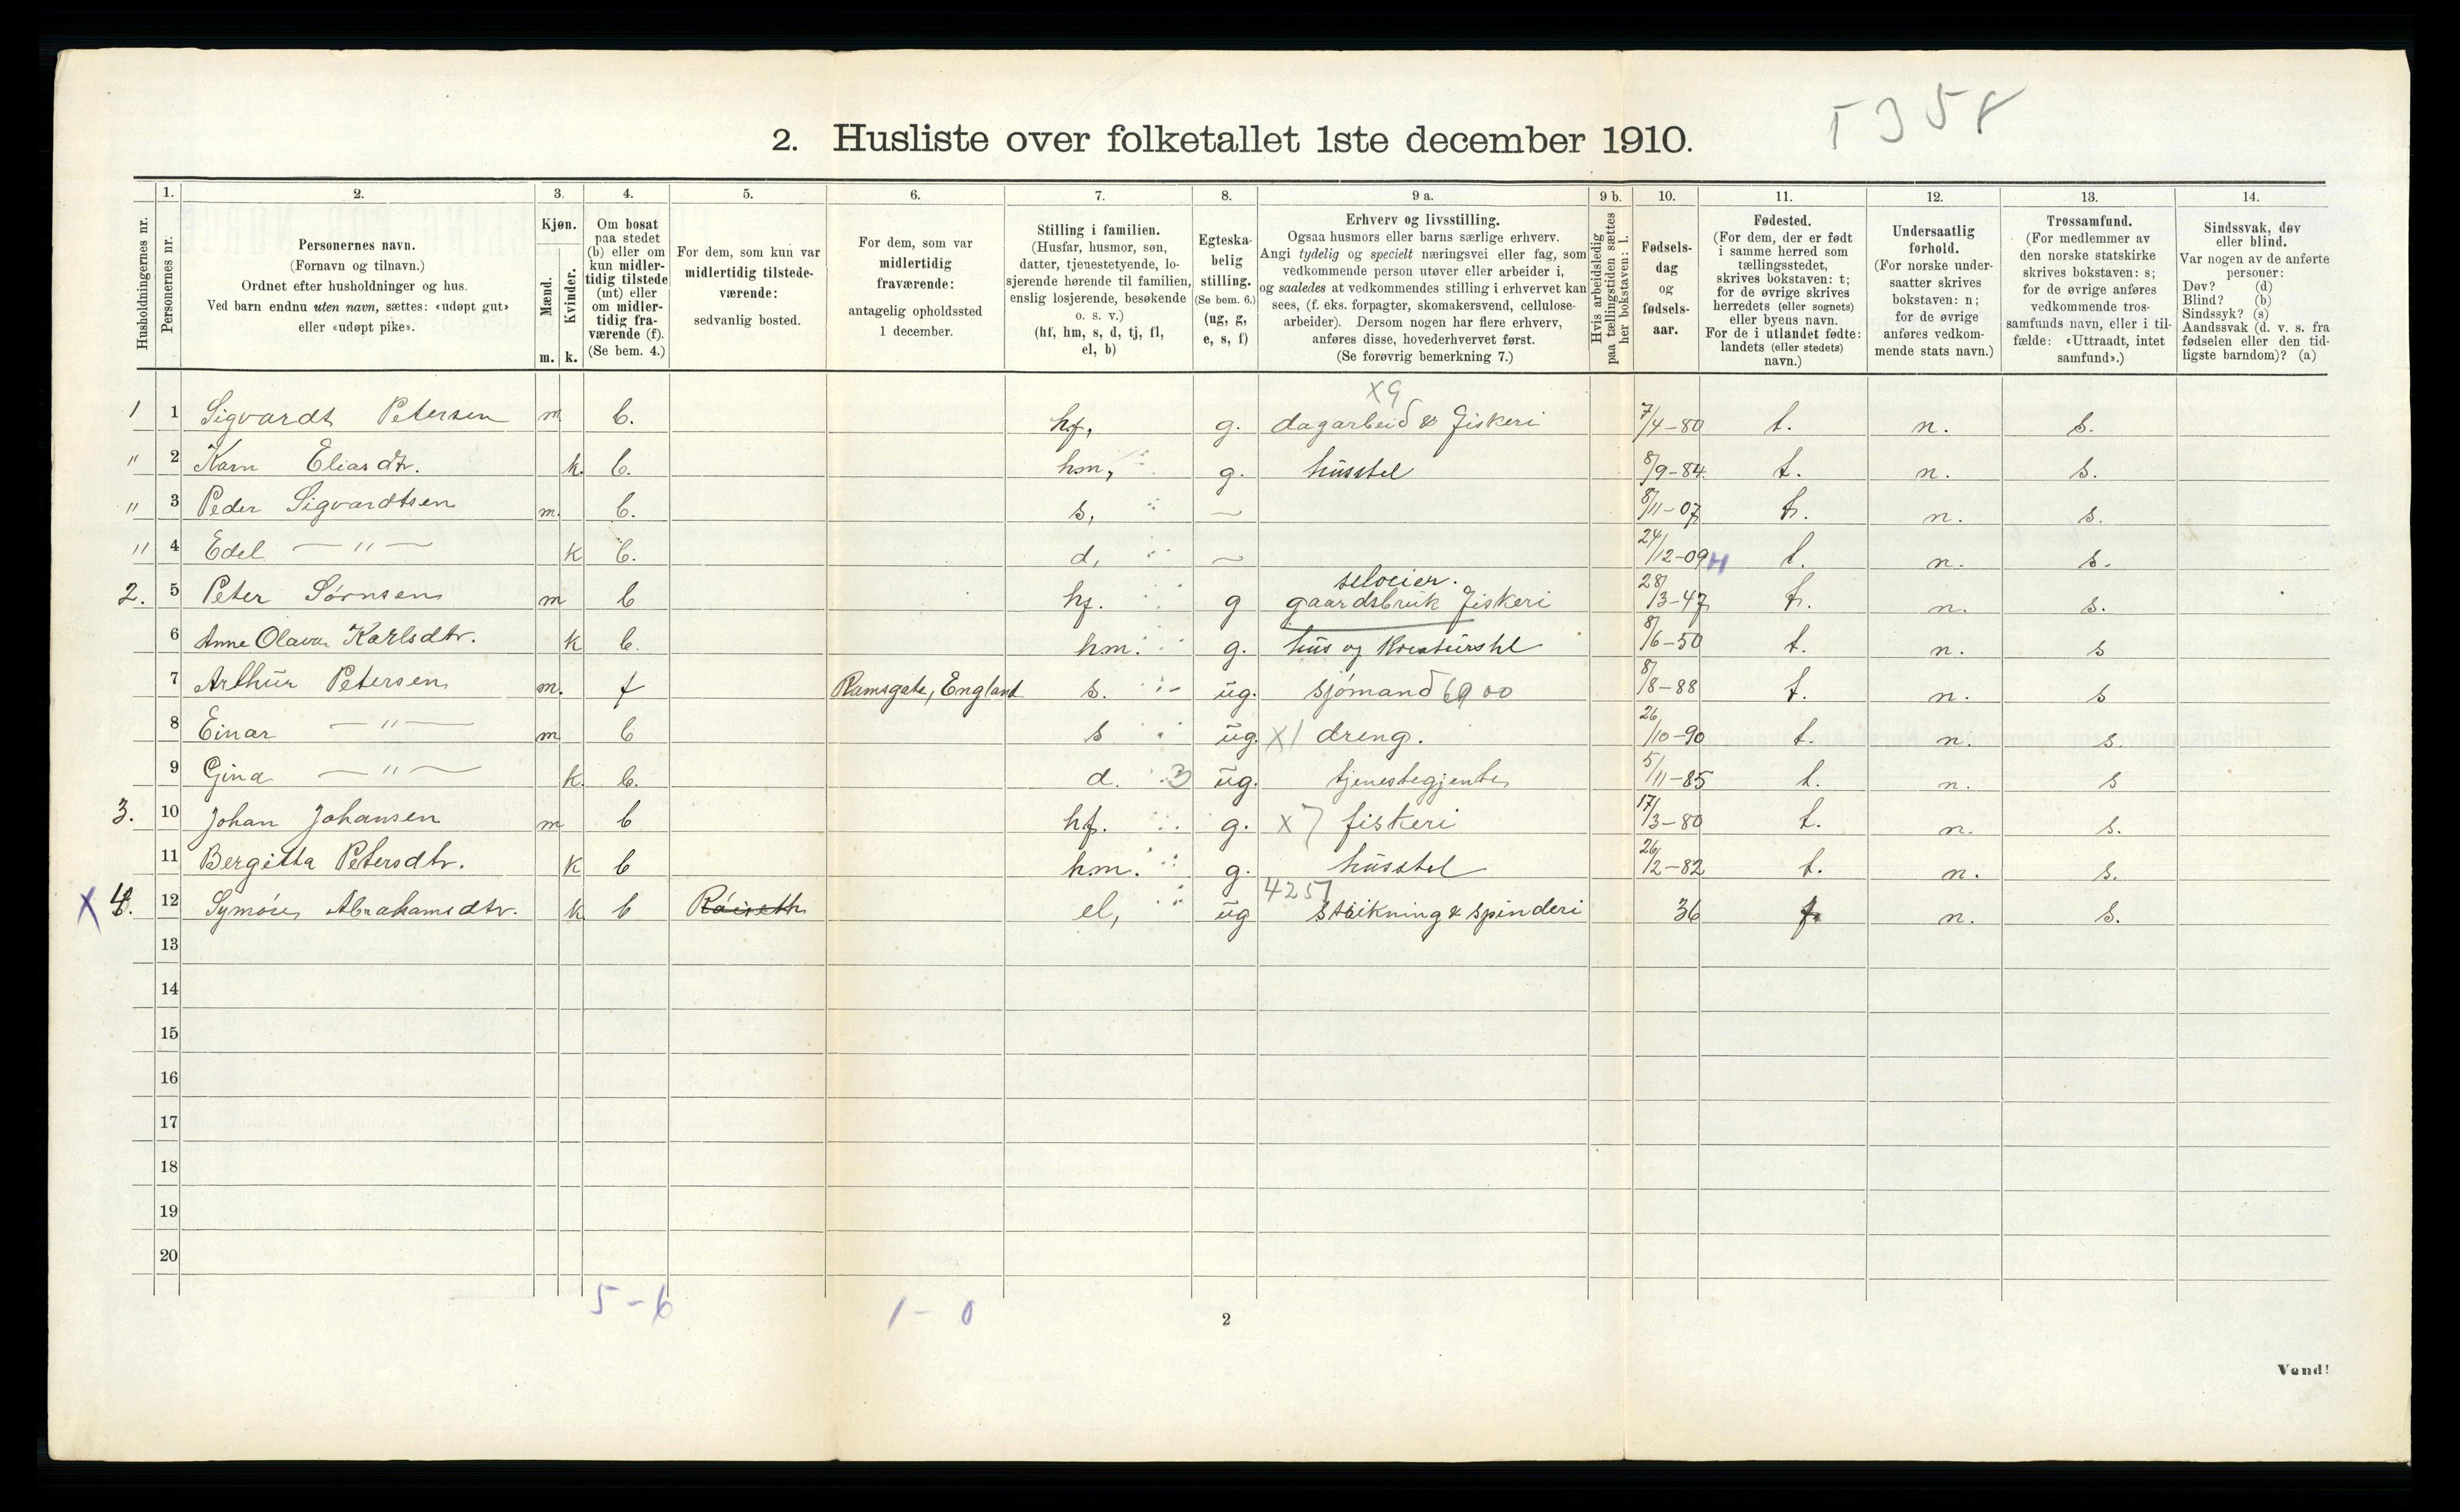 5358
2. Husliste over folketallet 1ste december 1910.
Husholdningernes nr.
1. Personernes nr.
2. Personernes navn. (Fornavn og tilnavn.) Ordnet efter husholdninger og hus. Ved barn endnu uten navn, sættes: «udøpt gut» eller «udøpt pike».
3. Kjøn. Mænd. m. Kvinder. k.
4. Om bosat paa stedet (b) eller om kun midlertidig tilstede (mt) eller om midlertidig fraværende (f). (Se bem. 4.)
5. For dem, som kun var midlertidig tilstedeværende: sedvanlig bosted.
6. For dem, som var midlertidig fraværende: antagelig opholdssted 1 december.
7. Stilling i familien. (Husfar, husmor, søn, datter, tjenestetyende, losjerende hørende til familien, enslig losjerende, besøkende o. s. v.) (hf, hm, s, d, tj, fl, el, b)
8. Egteskabelig stilling. (Se bem. 6.) (ug, g, e, s, f)
9 a. Erhverv og livsstilling. Ogsaa husmors eller barns særlige erhverv. Angi tydelig og specielt næringsvei eller fag, som vedkommende person utøver eller arbeider i, og saaledes at vedkommendes stilling i erhvervet kan sees, (f. eks. forpagter, skomakersvend, cellulosearbeider). Dersom nogen har flere erhverv, anføres disse, hovederhvervet først. (Se forøvrig bemerkning 7.)
9 b. Hvis arbeidsledig paa tællingstiden sættes her bokstaven: l.
10. Fødselsdag og fødselsaar.
11. Fødested. (For dem, der er født i samme herred som tællingsstedet, skrives bokstaven: t; for de øvrige skrives herredets (eller sognets) eller byens navn. For de i utlandet fødte: landets (eller stedets) navn.)
12. Undersaatlig forhold. (For norske undersaatter skrives bokstaven: n; for de øvrige anføres vedkommende stats navn.)
13. Trossamfund. (For medlemmer av den norske statskirke skrives bokstaven: s; for de øvrige anføres vedkommende trossamfunds navn, eller i tilfælde: «Uttraadt, intet samfund».)
14. Sindssvak, døv eller blind. Var nogen av de anførte personer: Døv? (d) Blind? (b) Sindssyk? (s) Aandssvak (d. v. s. fra fødselen eller den tidligste barndom)? (a)
x9
1 1 Sigvardt Petersen m b. hf, g. dagarbeid & fiskeri 7/4-80 t. n. s.
" 2 Karn Eliasdtr. k. b. hm, g. husstel 8/9-84. t. n. s.
" 3 Peder Sigvardtsen m. b. s, — 8/11-07 t. n. s.
" 4 Edel — " — k b. d, — 24/12-09 t. n. s.
seloeier.
2. 5 Peter Sørnsen m b hf. g gaardsbruk fiskeri 28/3-47 t. n. s.
6 Anne Olava Karlsdtr. k b. hm. g. hus og kreaturstel 8/6-50 t. n. s
7 Arthur Petersen m. f Ramsgate, England s. ug. sjømand 6900 8/8-88 t. n. s
8 Einar — " — m b s ug. x1 dreng. 26/10-90 t. n. s.
9 Gina — " — k. b. d. 3 ug. tjenestegjente 5/11-85 t. n. s
3. 10 Johan Johansen m b hf. g. x7 fiskeri 17/3-80 t. n. s.
11 Bergitta Petersdtr. k b hm. g. husstel 26/2-82 t. n. s.
4257
X 4. 12 Abrahamsdtr. k b el, ug strikning & spinderi 36 t. n. s.
13
14
15
16
17
18
19
20
5-6 1-0
2
Vend!